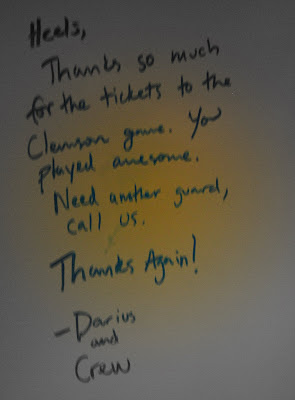 Heels,
Thanks so much
for the tickets to the
Clemson game. You
played awesome.
Need another guard,
call us.
Thanks Again!
- Darius
and
Crew